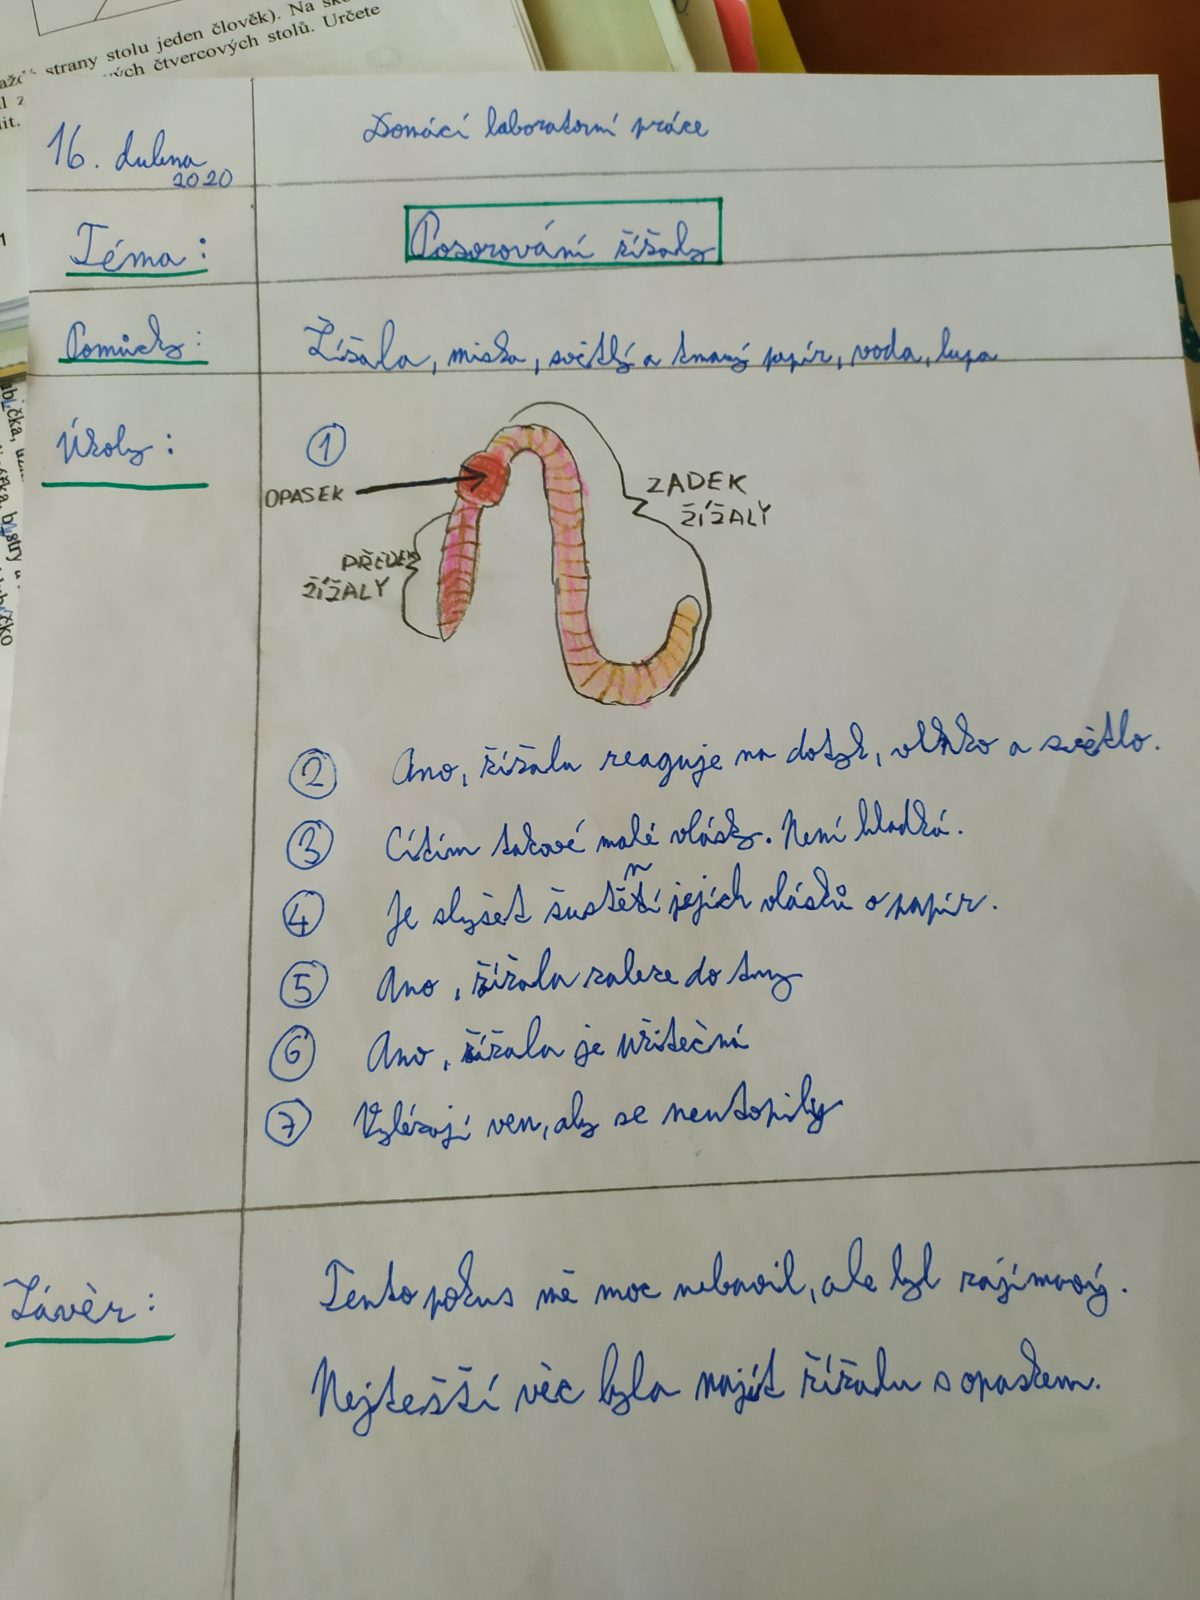 strany stolu jeden člověk). Na
čtvercových stolů. Určete
lit.
16. dubna
2020
Domácí laboratorní práce
Téma:
Pozorování žížaly
Pomůcky:
Žížala, miska, světlý a tmavý papír, voda, lupa
Úkoly:
1
OPASEK
ZADEK
ŽÍŽALY
PŘEDEK
ŽÍŽALY
2 Ano, žížala reaguje na dotyk, vlhko a světlo.
3 Cítím takové malé vlásky. Není hladká.
4 Je slyšet šustění jejích vlásků o papír.
5 Ano, žížala zaleze do tmy
6 Ano, žížala je užitečná
7 Vylézají ven, aby se neutopily
Závěr:
Tento pokus mě moc nebavil, ale byl zajímavý.
Nejtěšší věc byla najít žížalu s opaskem.